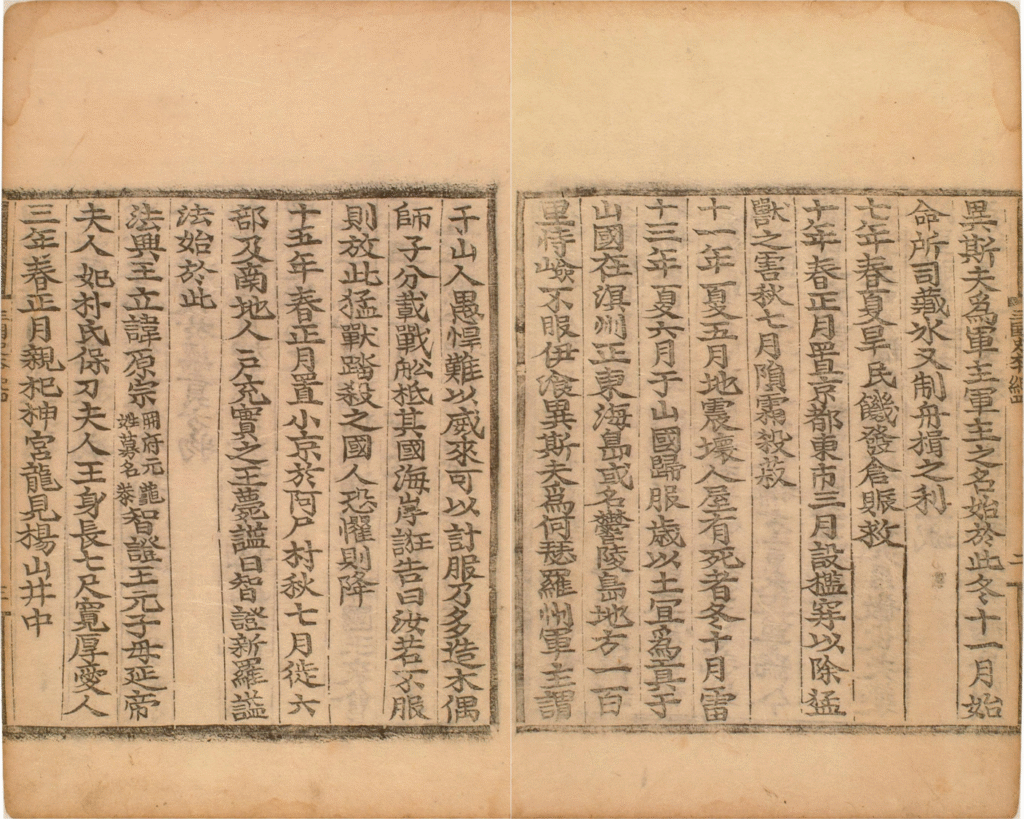 異斯夫爲軍主軍主之名始於此冬十一月始
命所司藏氷又制舟揖之利
七年春夏旱民饑發倉賑救
十年春正月置京都東市三月設檻穽以除猛
獸之害秋七月隕霜殺菽
十一年夏五月地震壞人屋有死者冬十月雷
十三年夏六月于山國歸服歳以土宜爲貢于
山國在溟州正東海島或名欝陵島地方一百
里恃嶮不服伊湌異斯夫爲何瑟羅州軍主謂
于山人愚悍難以威來可以計服乃多造木偶
師子分載戰舩抵其國海岸誑告曰汝若不服
則放此猛獸踏殺之國人恐懼則降
十五年春正月置小京於阿尸村秋七月徙六
部及南地人戸充實之王薨謚曰智證新羅謚
法始於此
法興王立諱原宗冊府元龜姓募名泰智證王元子母延帝
夫人妃朴氏保刀夫人王身長七尺寛厚愛人
三年春正月親祀神宮龍見楊山井中